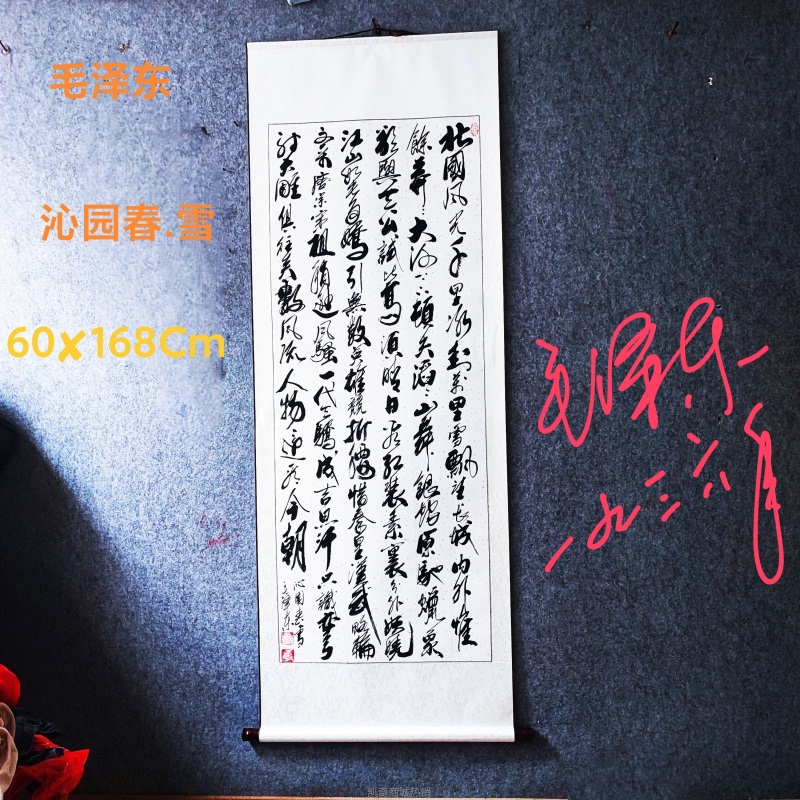 毛泽东
沁园春.雪
60x168Cm
北國風光千里冰封萬里雪飄望長城内外惟
餘莽：大河上下頓失滔：山舞銀蛇原馳蠟象
欲與天公試比高須晴日看紅裝素裹分外妖嬈
江山如此多嬌引無數英雄競折腰惜秦皇漢武略輸
文采唐宗宋祖稍遜風騷一代天驕成吉思汗只識彎弓
射大雕俱往矣數風流人物還看今朝
沁園春雪
毛澤東
毛澤东
一九三六年